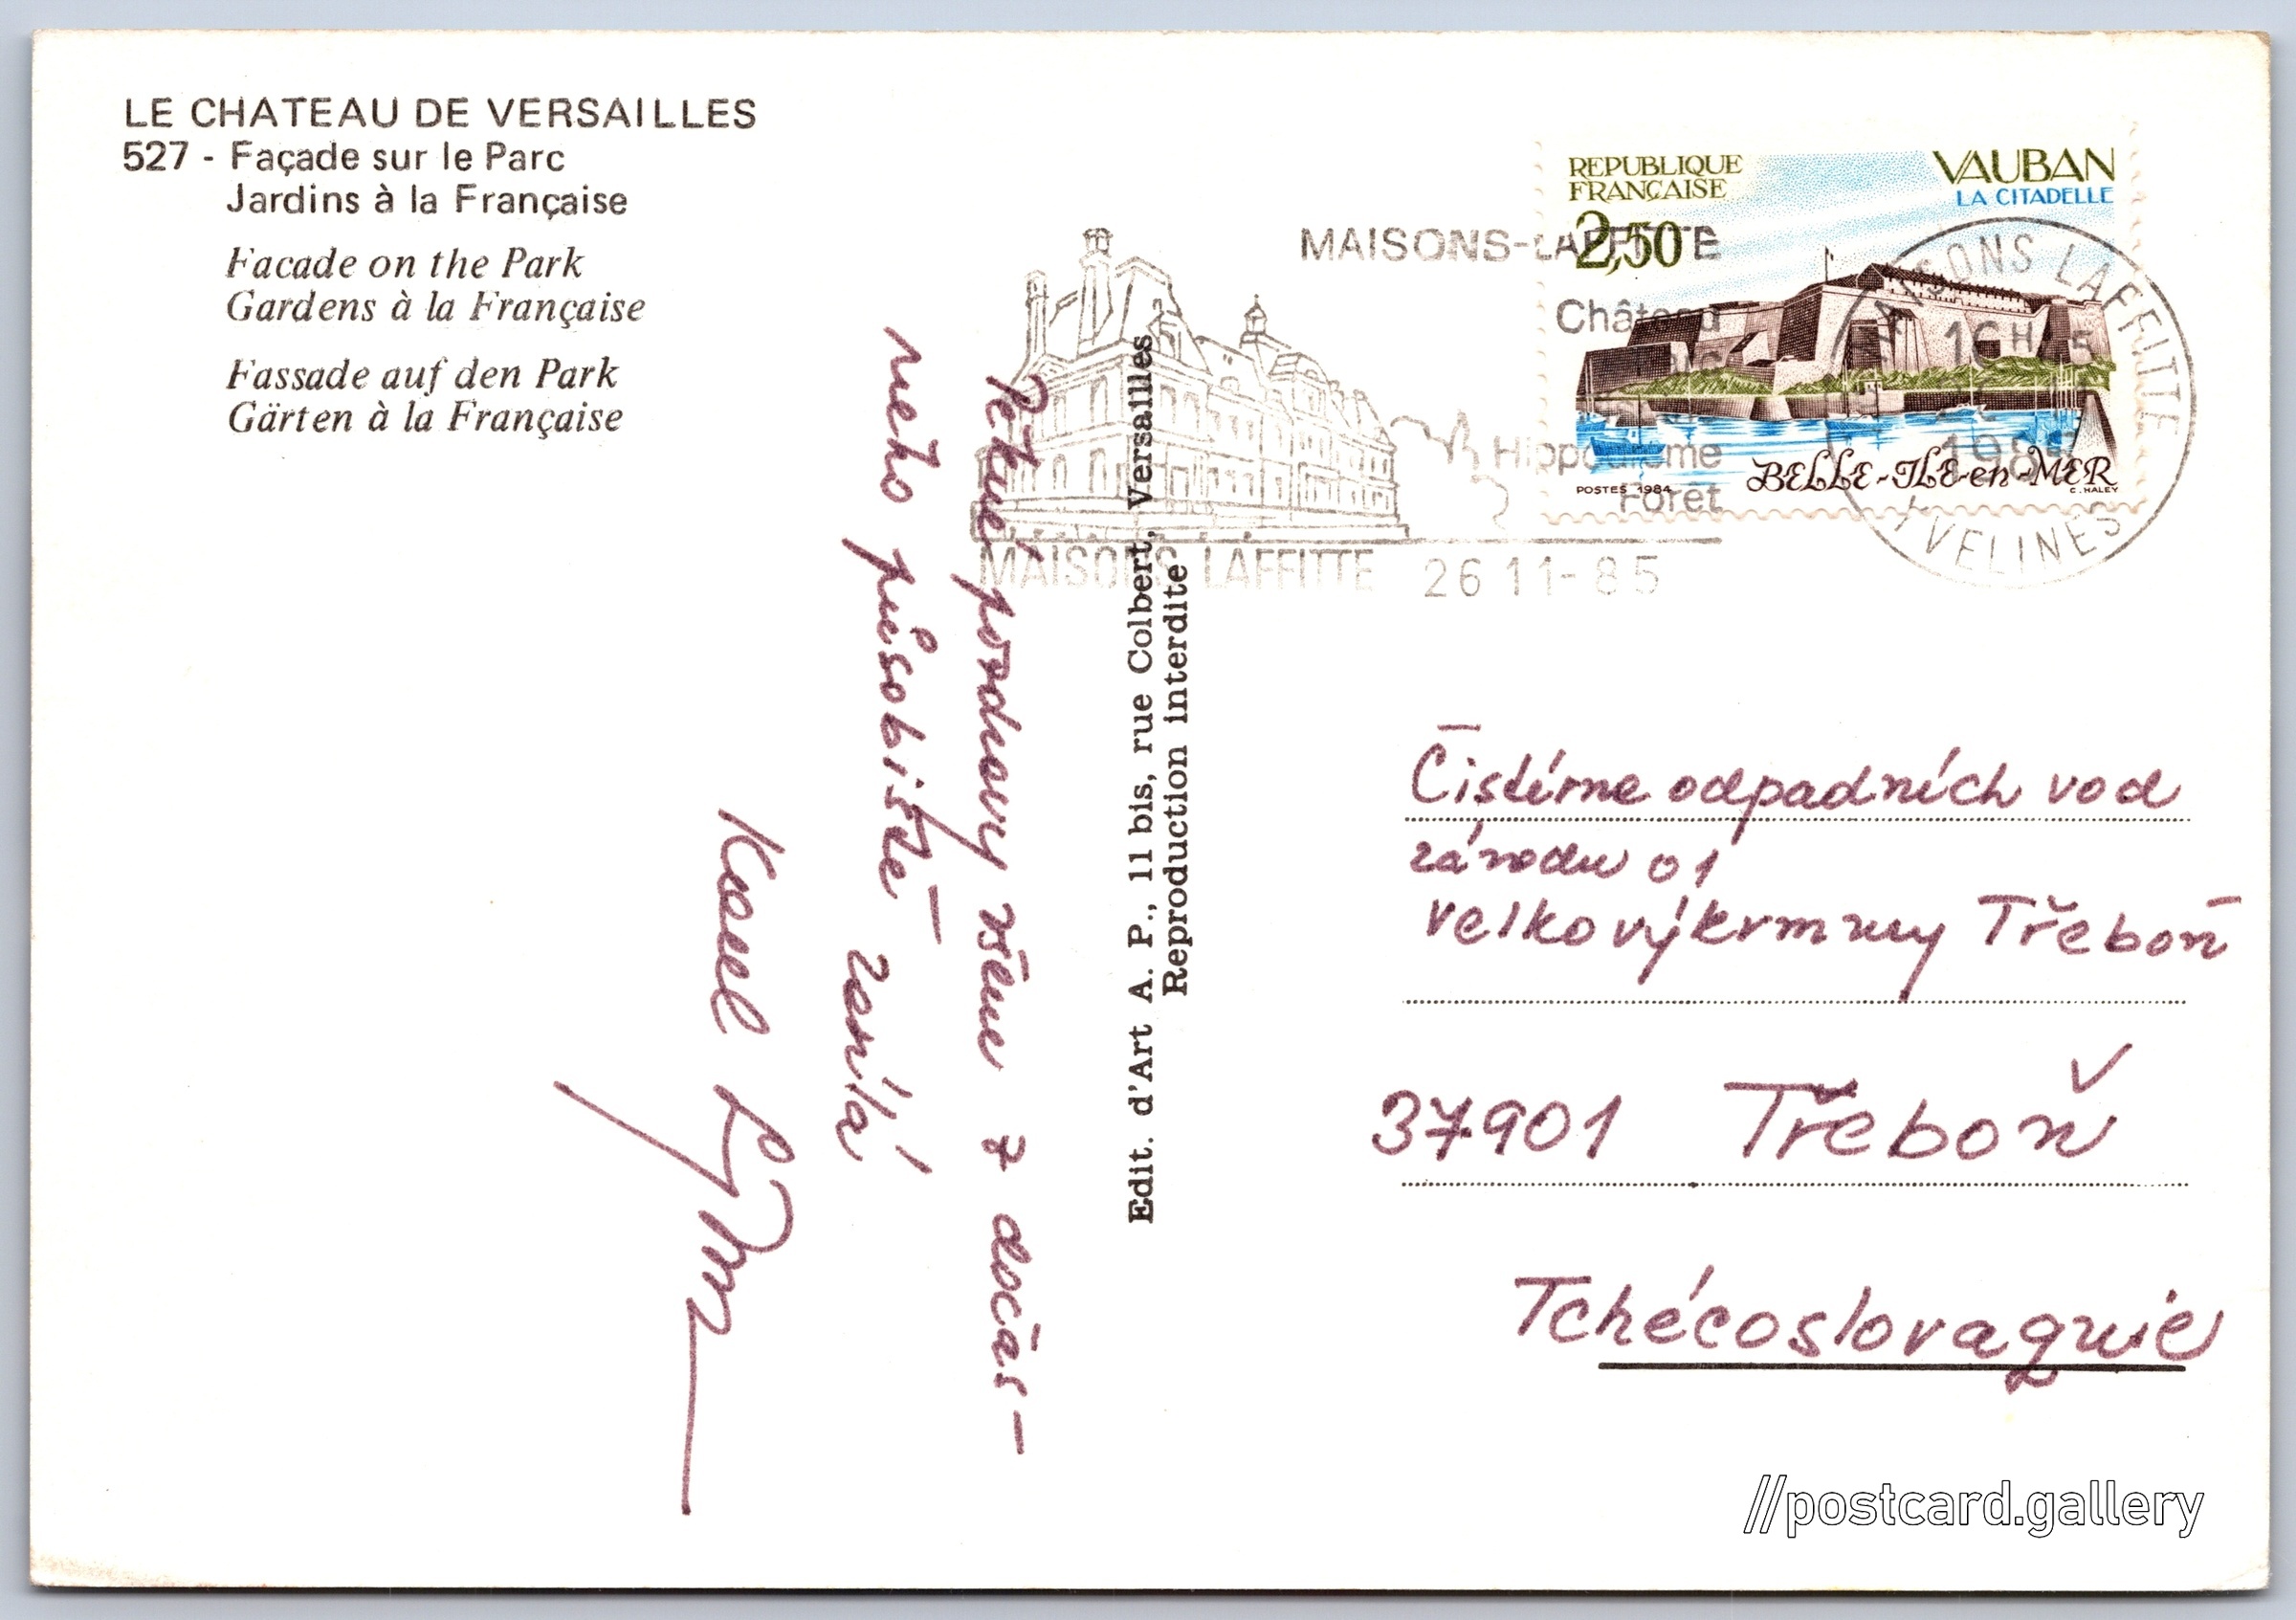 LE CHATEAU DE VERSAILLES
527 - Façade sur le Parc
Jardins à la Française
Facade on the Park
Gardens à la Française
Fassade auf den Park
Gärten à la Française
Pěkné pozdravy všem z dočas-
ného působiště
zasílá
Karel
Edit. d'Art A. P., 11 bis, rue Colbert, Versailles
Reproduction interdite
MAISONS-LAFFITTE
Château
Parc
Hippodrome
Forêt
MAISONS LAFFITTE 26 11-85
REPUBLIQUE
FRANÇAISE
2,50
VAUBAN
LA CITADELLE
BELLE-ILE-en-MER
POSTES 1984
C. HALEY
MAISONS LAFFITTE
16H
YVELINES
Čistírne odpadních vod
závodu 01
Velkovýkrmny Třeboň
37901 Třeboň
Tchécoslovaquie
//postcard.gallery